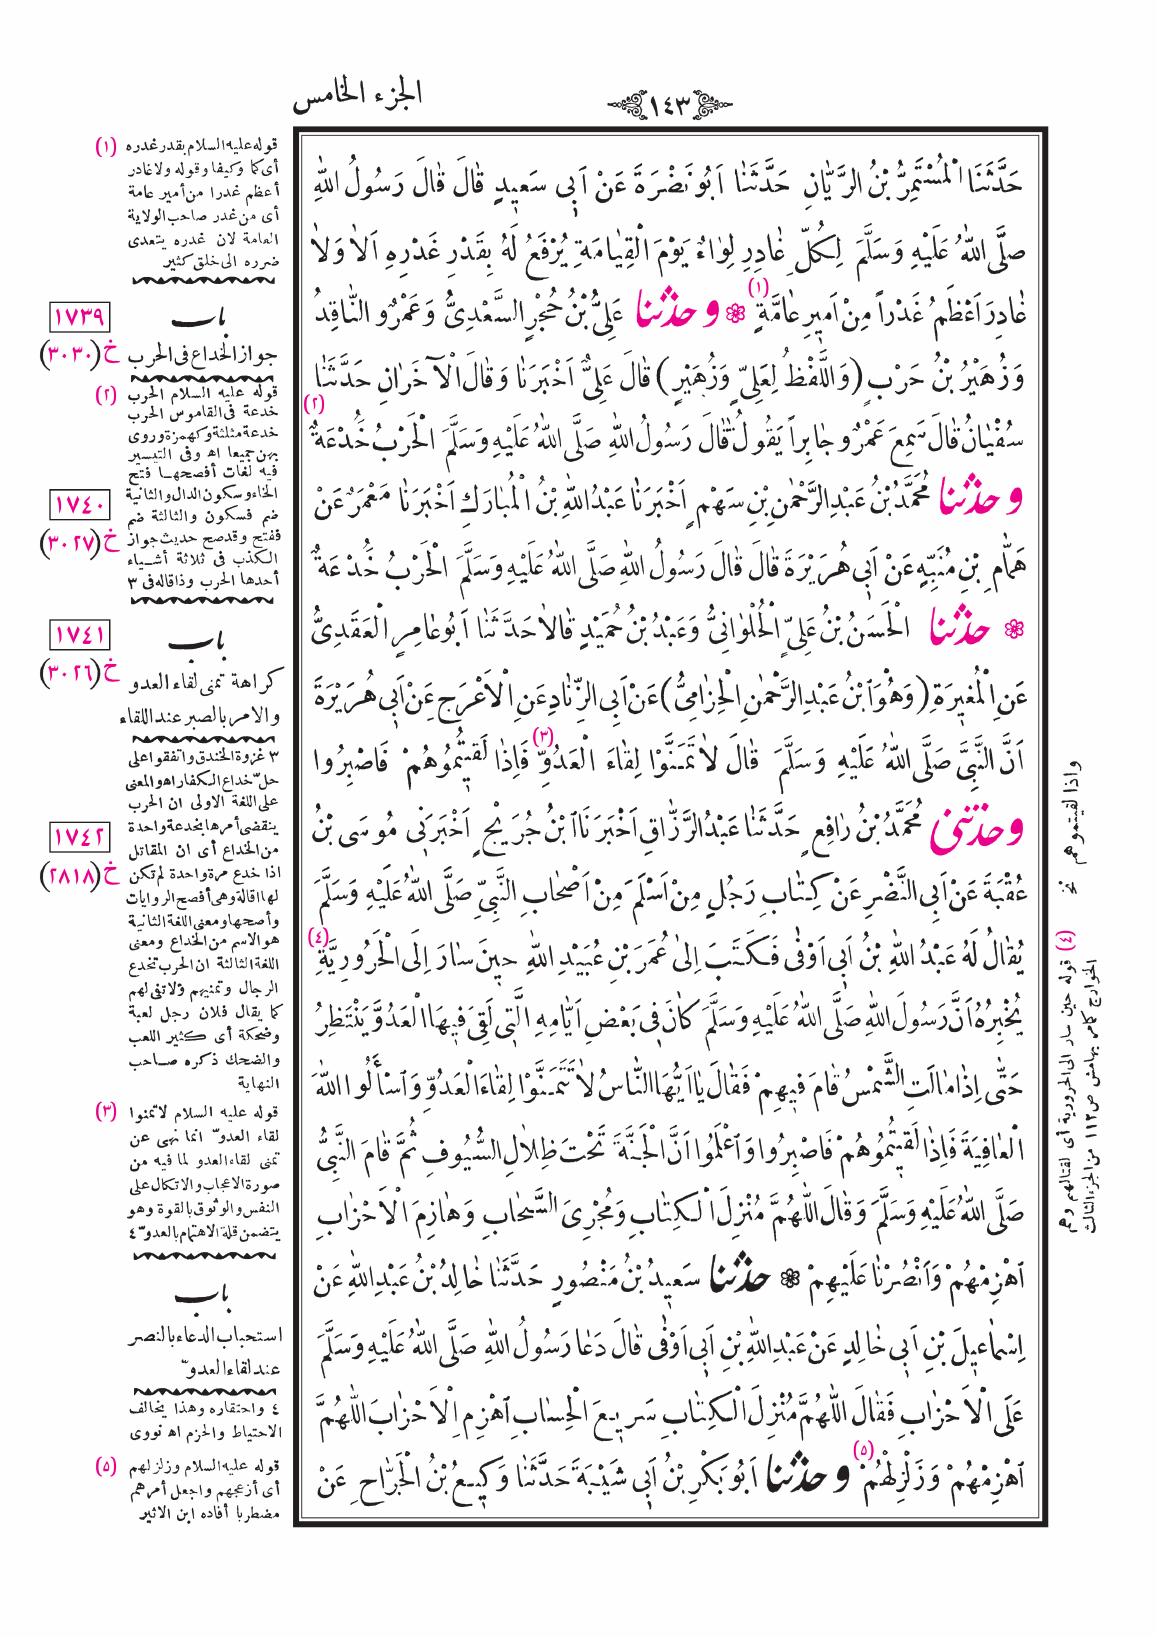 ١٤٣
الجزء الخامس
حَدَّثَنَا الْمُسْتَمِرُّ بْنُ الرَّيَّانِ حَدَّثَنَا اَبُو نَضْرَةَ عَنْ اَبِى سَعِيدٍ قَالَ قَالَ رَسُولُ اللّٰهِ
صَلَّى اللّٰهُ عَلَيْهِ وَسَلَّمَ لِكُلِّ غَادِرٍ لِوَاءٌ يَوْمَ الْقِيَامَةِ يُرْفَعُ لَهُ بِقَدْرِ غَدْرِهِ اَلاَ وَلاَ
غَادِرَ اَعْظَمُ غَدْراً مِنْ اَمِيرِ عَامَّةٍ (١) ❁ و حدثنا عَلِىُّ بْنُ حُجْرٍ السَّعْدِىُّ وَعَمْرٌو النَّاقِدُ
وَزُهَيْرُ بْنُ حَرْبٍ (وَاللَّفْظُ لِعَلِىٍّ وَزُهَيْرٍ) قَالَ عَلِىٌّ اَخْبَرَنَا وَقَالَ الْآخَرَانِ حَدَّثَنَا
سُفْيَانُ قَالَ سَمِعَ عَمْرٌو جَابِراً يَقُولُ قَالَ رَسُولُ اللّٰهِ صَلَّى اللّٰهُ عَلَيْهِ وَسَلَّمَ الْحَرْبُ خُدْعَةٌ (٢)
و حدثنا مُحَمَّدُ بْنُ عَبْدِ الرَّحْمٰنِ بْنِ سَهْمٍ اَخْبَرَنَا عَبْدُ اللّٰهِ بْنُ الْمُبَارَكِ اَخْبَرَنَا مَعْمَرٌ عَنْ
هَمَّامِ بْنِ مُنَبِّهٍ عَنْ اَبِى هُرَيْرَةَ قَالَ قَالَ رَسُولُ اللّٰهِ صَلَّى اللّٰهُ عَلَيْهِ وَسَلَّمَ الْحَرْبُ خُدْعَةٌ
❁ حدثنا الْحَسَنُ بْنُ عَلِىٍّ الْحُلْوَانِىُّ وَعَبْدُ بْنُ حُمَيْدٍ قَالاَ حَدَّثَنَا اَبُو عَامِرٍ الْعَقَدِىُّ
عَنِ الْمُغِيرَةِ (وَهُوَ ابْنُ عَبْدِ الرَّحْمٰنِ الْحِزَامِىُّ) عَنْ اَبِى الزِّنَادِ عَنِ الْاَعْرَجِ عَنْ اَبِى هُرَيْرَةَ
اَنَّ النَّبِىَّ صَلَّى اللّٰهُ عَلَيْهِ وَسَلَّمَ قَالَ لاَ تَمَنَّوْا لِقَاءَ الْعَدُوِّ (٣) فَاِذَا لَقِيتُمُوهُمْ فَاصْبِرُوا
وحدثنى مُحَمَّدُ بْنُ رَافِعٍ حَدَّثَنَا عَبْدُ الرَّزَّاقِ اَخْبَرَنَا ابْنُ جُرَيْجٍ اَخْبَرَنِى مُوسَى بْنُ
عُقْبَةَ عَنْ اَبِى النَّضْرِ عَنْ كِتَابِ رَجُلٍ مِنْ اَسْلَمَ مِنْ اَصْحَابِ النَّبِىِّ صَلَّى اللّٰهُ عَلَيْهِ وَسَلَّمَ
يُقَالُ لَهُ عَبْدُ اللّٰهِ بْنُ اَبِى اَوْفٰى فَكَتَبَ اِلٰى عُمَرَ بْنِ عُبَيْدِ اللّٰهِ حِينَ سَارَ اِلَى الْحَرُورِيَّةِ (٤)
يُخْبِرُهُ اَنَّ رَسُولَ اللّٰهِ صَلَّى اللّٰهُ عَلَيْهِ وَسَلَّمَ كَانَ فِى بَعْضِ اَيَّامِهِ الَّتِى لَقِىَ فِيهَا الْعَدُوَّ يَنْتَظِرُ
حَتّٰى اِذَا مَالَتِ الشَّمْسُ قَامَ فِيهِمْ فَقَالَ يَا اَيُّهَا النَّاسُ لاَ تَتَمَنَّوْا لِقَاءَ الْعَدُوِّ وَاسْأَلُوا اللّٰهَ
الْعَافِيَةَ فَاِذَا لَقِيتُمُوهُمْ فَاصْبِرُوا وَاعْلَمُوا اَنَّ الْجَنَّةَ تَحْتَ ظِلاَلِ السُّيُوفِ ثُمَّ قَامَ النَّبِىُّ
صَلَّى اللّٰهُ عَلَيْهِ وَسَلَّمَ وَقَالَ اللّٰهُمَّ مُنْزِلَ الْكِتَابِ وَمُجْرِىَ السَّحَابِ وَهَازِمَ الْاَحْزَابِ
اهْزِمْهُمْ وَانْصُرْنَا عَلَيْهِمْ ❁ حدثنا سَعِيدُ بْنُ مَنْصُورٍ حَدَّثَنَا خَالِدُ بْنُ عَبْدِ اللّٰهِ عَنْ
اِسْمَاعِيلَ بْنِ اَبِى خَالِدٍ عَنْ عَبْدِ اللّٰهِ بْنِ اَبِى اَوْفٰى قَالَ دَعَا رَسُولُ اللّٰهِ صَلَّى اللّٰهُ عَلَيْهِ وَسَلَّمَ
عَلَى الْاَحْزَابِ فَقَالَ اللّٰهُمَّ مُنْزِلَ الْكِتَابِ سَرِيعَ الْحِسَابِ اهْزِمِ الْاَحْزَابَ اللّٰهُمَّ
اهْزِمْهُمْ وَزَلْزِلْهُمْ (٥) و حدثنا اَبُو بَكْرِ بْنُ اَبِى شَيْبَةَ حَدَّثَنَا وَكِيعُ بْنُ الْجَرَّاحِ عَنْ
واذا لقيتموهم نخ
(٤) قوله حين سار الى الحرورية أى لقتالهم وهم
الخوارج كما مر بهامش ص ١١٢ من الجزء الثالث
(١) قوله عليه السلام بقدر غدره
أى كما وكيفا وقوله ولا غادر
أعظم غدرا من أمير عامة
أى من غدر صاحب الولاية
العامة لان غدره يتعدى
ضرره الى خلق كثير
١٧٣٩
باب
خ (٣٠٣٠)
جواز الخداع فى الحرب
(٢) قوله عليه السلام الحرب
خدعة فى القاموس الحرب
خدعة مثلثة وكهمزة وروى
بهن جميعا اه وفى التيسير
فيه لغات أفصحها فتح
الخاء وسكون الدال والثانية
١٧٤٠
ضم فسكون والثالثة ضم
خ (٣٠٢٧)
ففتح وقدصح حديث جواز
الكذب فى ثلاثة أشياء
أحدها الحرب وذا قاله فى ٣
١٧٤١
باب
خ (٣٠٢٦)
كراهة تمنى لقاء العدو
والامر بالصبر عند اللقاء
٣ غزوة الخندق واتفقوا على
حل خداع الكفار اه والمعنى
على اللغة الاولى ان الحرب
١٧٤٢
ينقضى أمرها بخدعة واحدة
من الخداع أى ان المقاتل
خ (٢٨١٨)
اذا خدع مرة واحدة لم تكن
لها اقالة وهى أفصح الروايات
وأصحها ومعنى اللغة الثانية
هو الاسم من الخداع ومعنى
اللغة الثالثة ان الحرب تخدع
الرجال وتمنيهم ولا تفى لهم
كما يقال فلان رجل لعبة
وضحكة أى كثير اللعب
والضحك ذكره صاحب
النهاية
(٣) قوله عليه السلام لا تمنوا
لقاء العدوّ انما نهى عن
تمنى لقاء العدو لما فيه من
صورة الاعجاب والاتكال على
النفس والوثوق بالقوة وهو
يتضمن قلة الاهتمام بالعدوّ ٤
باب
استحباب الدعاء بالنصر
عند لقاء العدوّ
٤ واحتقاره وهذا يخالف
الاحتياط والحزم اه نووى
(٥) قوله عليه السلام وزلزلهم
أى أزعجهم واجعل أمرهم
مضطربا أفاده ابن الاثير